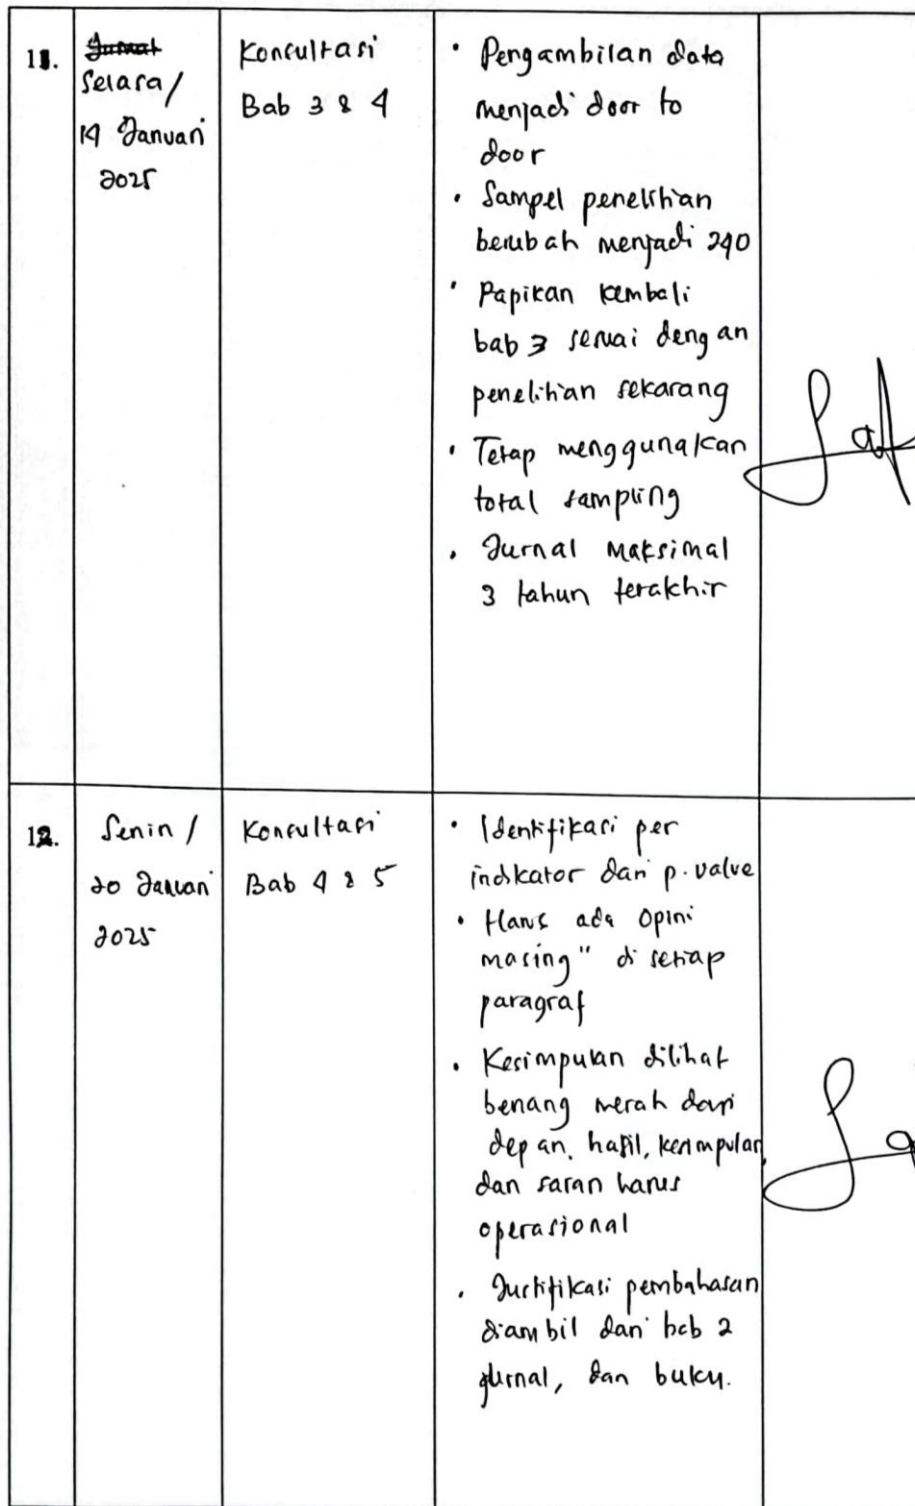 11.
Jumat
Selasa/
14 Januari
2025
Konsultasi
Bab 3 & 4
• Pengambilan data
menjadi door to
door
• Sampel penelitian
berubah menjadi 240
• Rapikan kembali
bab 3 sesuai dengan
penelitian sekarang
• Tetap menggunakan
total sampling
• Jurnal maksimal
3 tahun terakhir
12.
Senin /
20 Januari
2025
Konsultasi
Bab 4 & 5
• Identifikasi per
indikator dari p. value
• Harus ada opini
masing" di setiap
paragraf
• Kesimpulan dilihat
benang merah dari
depan, hasil, kesimpulan,
dan saran harus
operasional
• Justifikasi pembahasan
diambil dari bab 2
jurnal, dan buku.